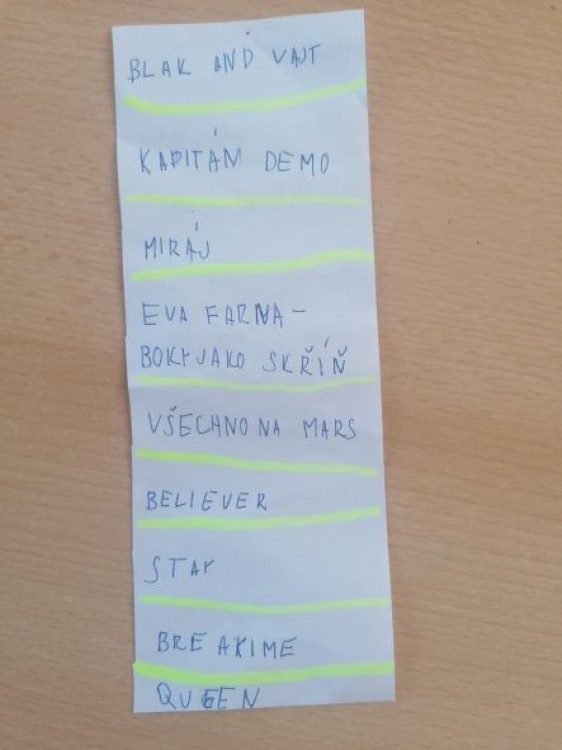 BLAK AND VAJT
KAPITÁN DEMO
MIRÁJ
EVA FARNA -
BOKY JAKO SKŘÍŇ
VŠECHNO NA MARS
BELIEVER
STAY
BREAKIME
QUEEN